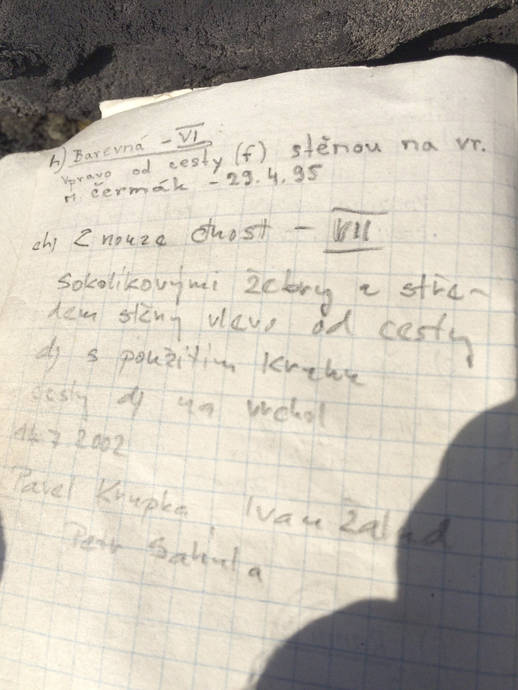 h) Barevná - VI
vpravo od cesty (f) stěnou na vr.
M. Čermák - 29.4.95
ch) Z nouze ctnost - VII
Sokolíkovými žebry a stře-
dem stěny vlevo od cesty
d) s použitím kruhu
cesty d) na vrchol
14.7.2002
Pavel Krupka, Ivan Žalud
Petr